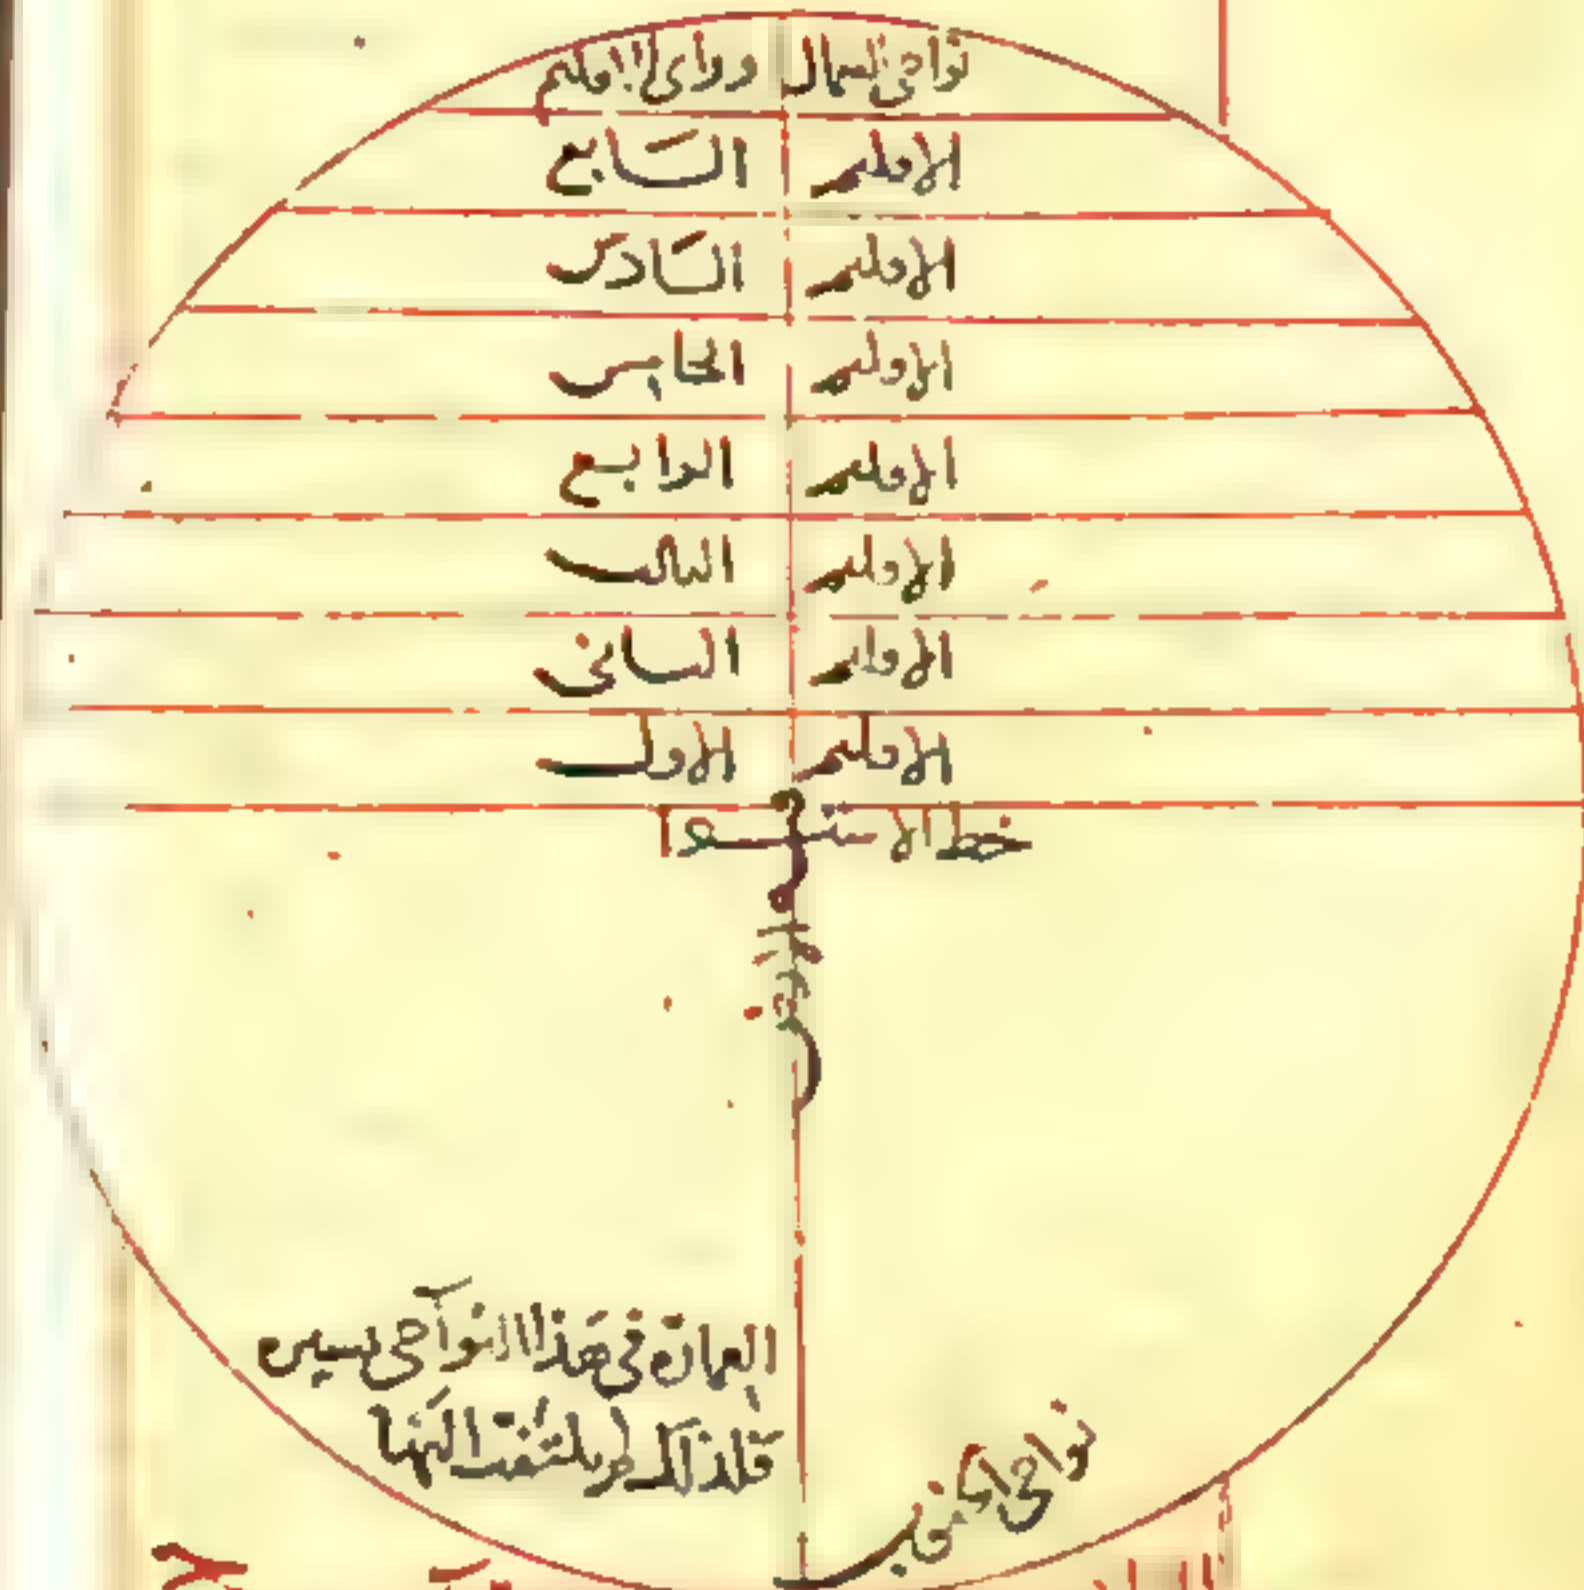 نواحى الشمال وراى الاقليم
الاقليم السَابع
الاقليم السَادس
الاقليم الخامس
الاقليم الرابع
الاقليم الثالث
الاقليم الثانى
الاقليم الاول
خط الاستوا
العمارة فى هَذا النوآحى يسيره
فلذلك لم يلتفت اليَها
نواحى الجنوب